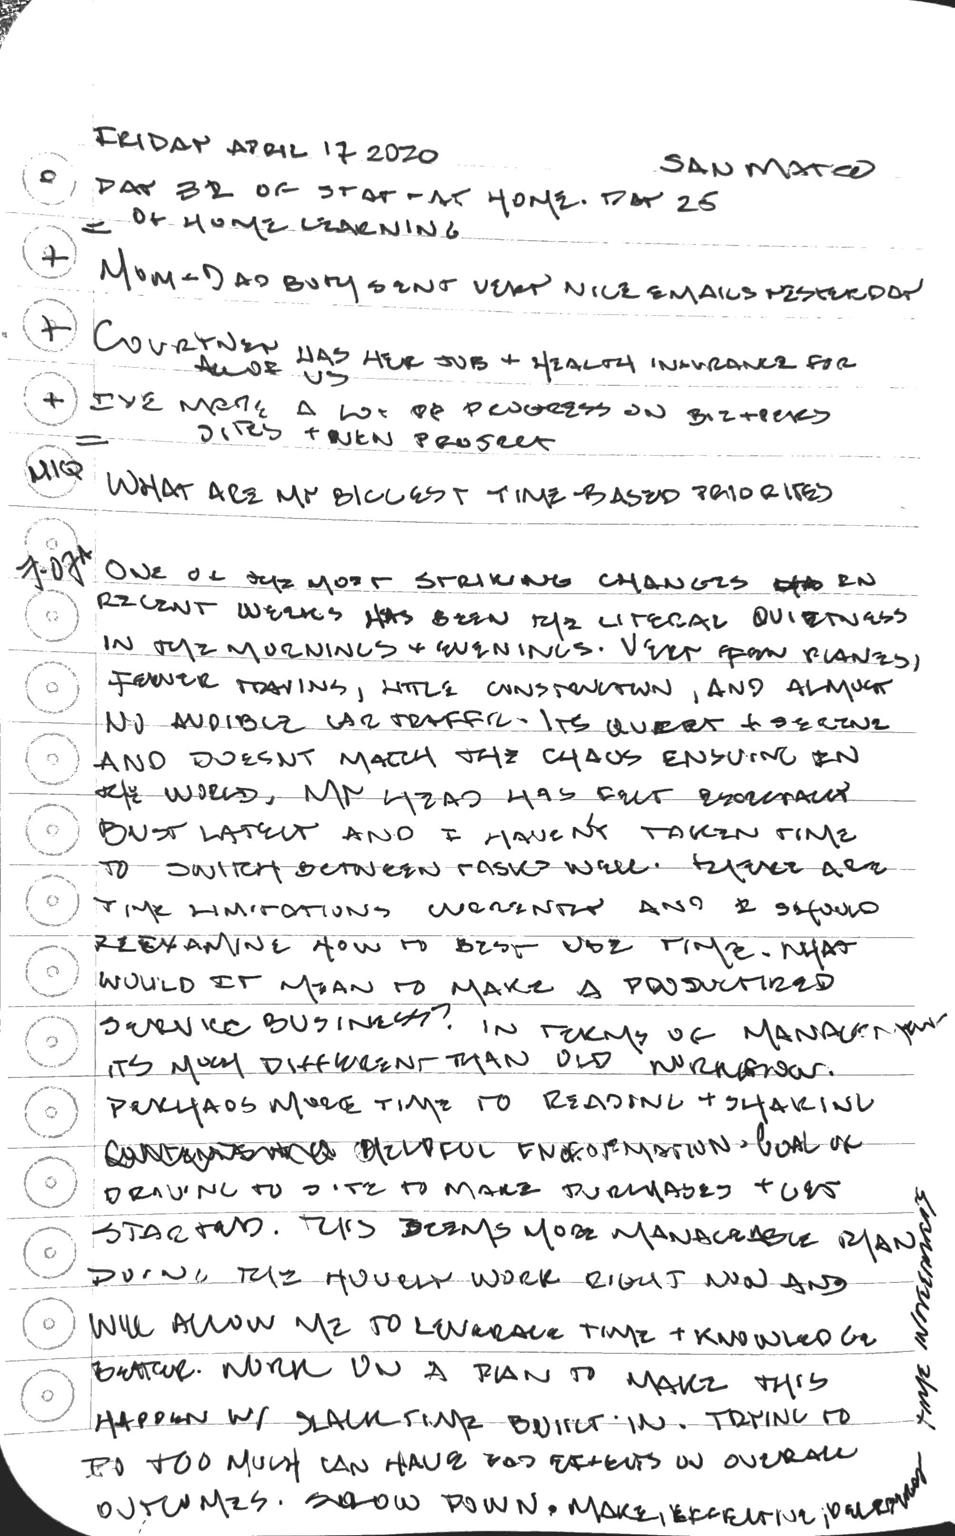 FRIDAY APRIL 17 2020
SAN MATEO
DAY 32 OF STAY-AT HOME. DAY 25
= OF HOME LEARNING
+ MOM + DAD BOTH SENT VERY NICE EMAILS YESTERDAY
+ COURTNEY HAS HER JOB + HEALTH INSURANCE FOR
US
+ I'VE MADE A LOT OF PROGRESS ON
= SITES + NEW PROJECT
MIQ WHAT ARE MY BIGGEST TIME-BASED PRIORITES
7:07A ONE OF THE MOST STRIKING CHANGES IN
RECENT WEEKS HAS BEEN THE LITERAL QUIETNESS
IN THE MORNINGS + EVENINGS. VERY FEW PLANES,
FEWER TRAINS, LITTLE CONSTRUCTION, AND ALMOST
NO AUDIBLE CAR TRAFFIC. ITS QUIET + SERENE
AND DOESNT MATCH THE CHAOS ENSUING IN
THE WORLD. MY HEAD HAS FELT ESPECIALLY
BUSY LATELY AND I HAVEN'T TAKEN TIME
TO SWITCH BETWEEN TASKS WELL. THERE ARE
TIME LIMITATIONS CURRENTLY AND I SHOULD
REEXAMINE HOW TO BEST USE TIME. WHAT
WOULD IT MEAN TO MAKE A PRODUCTIZED
SERVICE BUSINESS? IN TERMS OF MANAGEMENT
ITS MUCH DIFFERENT THAN OLD WORKFLOW.
PERHAPS MORE TIME TO READING + SHARING
HELPFUL INFORMATION. GOAL OF
DRIVING TO SITE TO MAKE PURCHASES + GET
STARTED. THIS SEEMS MORE MANAGEABLE THAN
DOING THE HOURLY WORK RIGHT NOW AND
WILL ALLOW ME TO LEVERAGE TIME + KNOWLEDGE
BETTER. WORK ON A PLAN TO MAKE THIS
HAPPEN W/ SLACK TIME BUILT IN. TRYING TO
DO TOO MUCH CAN HAVE BAD EFFECTS ON OVERALL
OUTCOMES. SLOW DOWN. MAKE, EFFECTIVE,
TIME INVESTMENTS